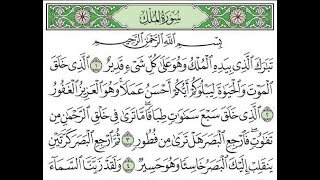 سُورَةُ الْمُلْكِ
بِسْمِ اللَّهِ الرَّحْمَٰنِ الرَّحِيمِ
تَبَٰرَكَ الَّذِي بِيَدِهِ الْمُلْكُ وَهُوَ عَلَىٰ كُلِّ شَيْءٍ قَدِيرٌ ١ الَّذِي خَلَقَ
الْمَوْتَ وَالْحَيَوٰةَ لِيَبْلُوَكُمْ أَيُّكُمْ أَحْسَنُ عَمَلًا وَهُوَ الْعَزِيزُ الْغَفُورُ
٢ الَّذِي خَلَقَ سَبْعَ سَمَٰوَٰتٍ طِبَاقًا مَّا تَرَىٰ فِي خَلْقِ الرَّحْمَٰنِ مِن
تَفَٰوُتٍ فَارْجِعِ الْبَصَرَ هَلْ تَرَىٰ مِن فُطُورٍ ٣ ثُمَّ ارْجِعِ الْبَصَرَ كَرَّتَيْنِ
يَنقَلِبْ إِلَيْكَ الْبَصَرُ خَاسِئًا وَهُوَ حَسِيرٌ ٤ وَلَقَدْ زَيَّنَّا السَّمَاءَ